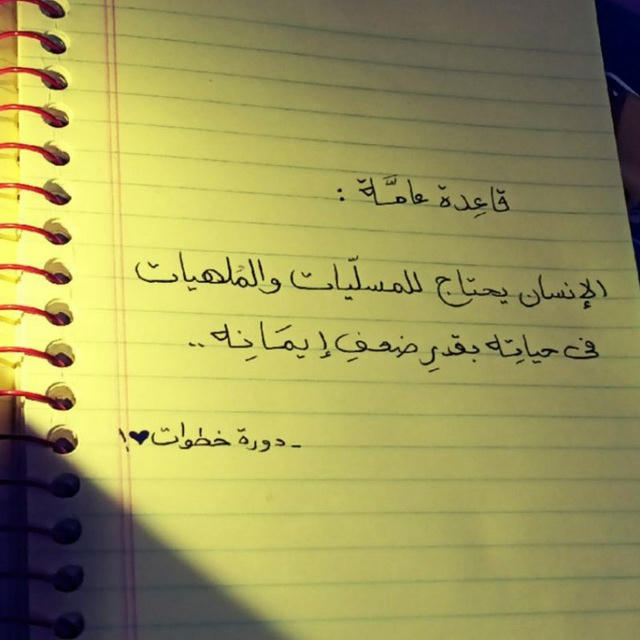 قاعِدة عامَّـة :
الإنسان يحتاج للمسلّيات والمُلهيات
في حياتِه بقدرِ ضعفِ إيمَانِه ..
- دورة خطوات♥!